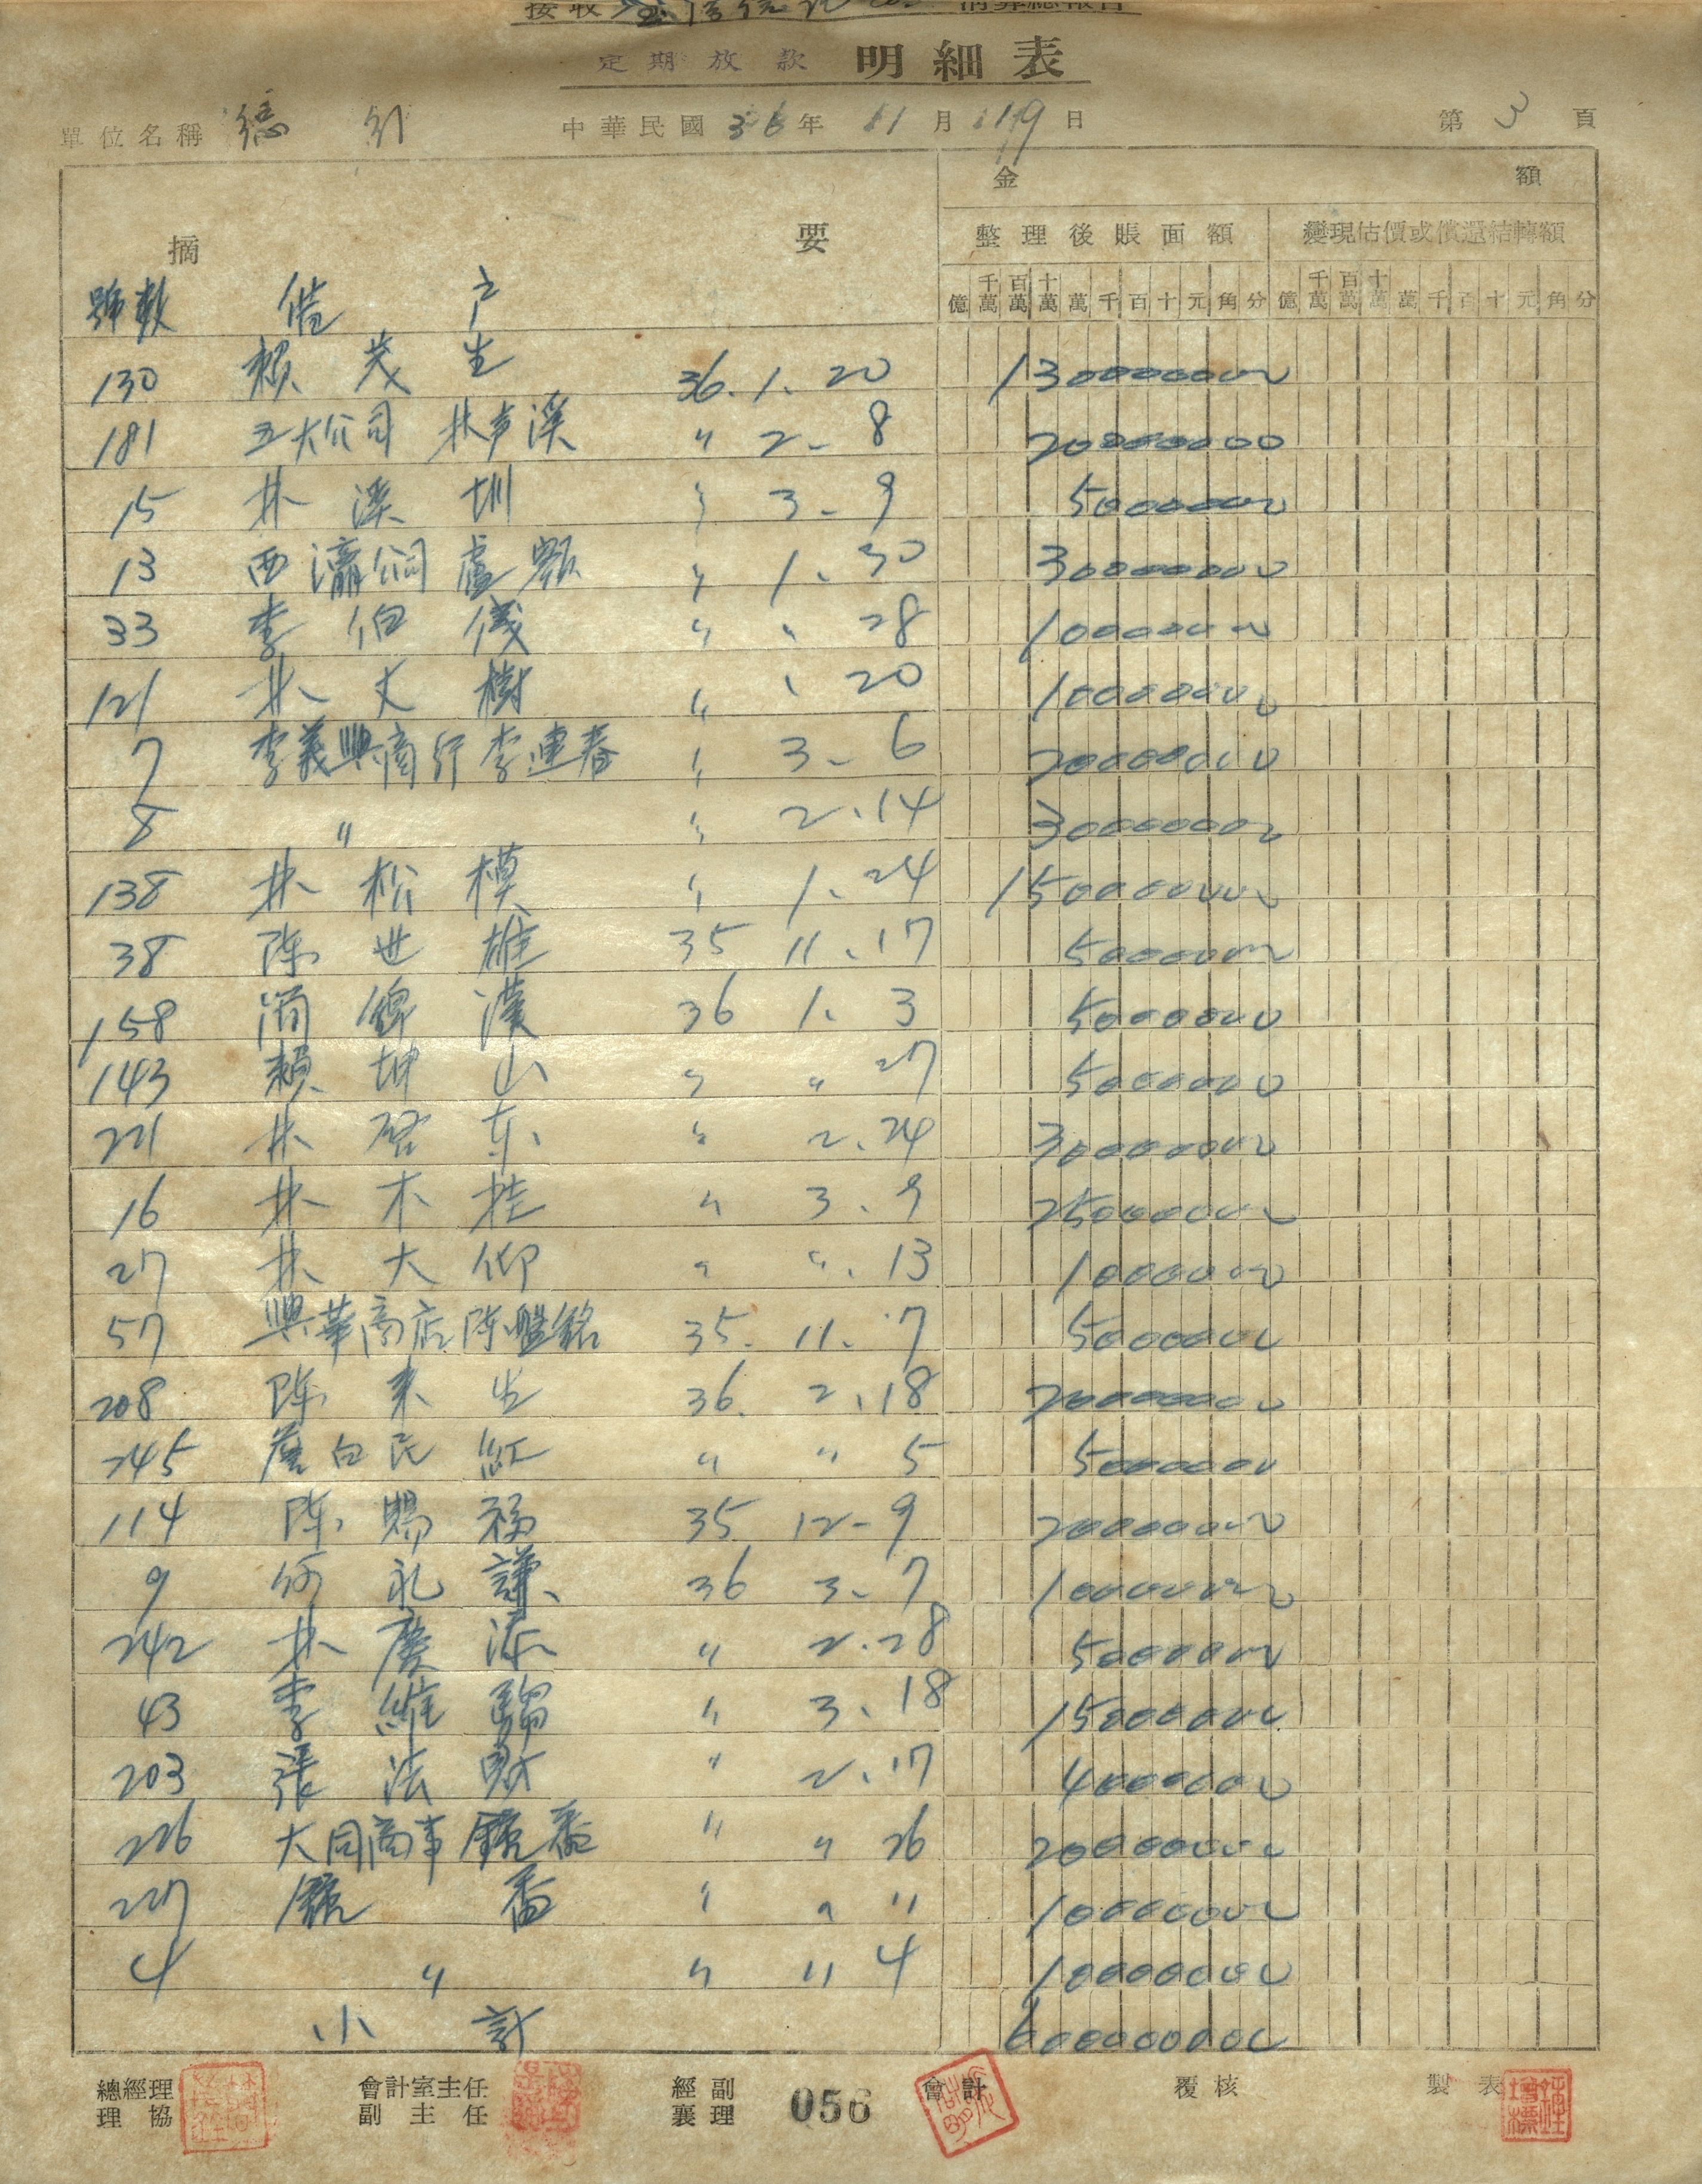 接收 清算總報告
定期放款 明細表
單位名稱 總 行 中華民國 36 年 11 月 19 日 第 3 頁
金 額
摘 要 整理後賬面額 變現估價或償還結轉額
號數 借 戶 億 千萬 百萬 十萬 萬 千 百 十 元 角 分 億 千萬 百萬 十萬 萬 千 百 十 元 角 分
130 賴 茂 生 36. 1. 20 1300000000
181 五大公司 林 溪 〃 2- 8 200000000
15 林 溪 圳 〃 3- 9 50000000
13 西瀛公司 盧 〃 1. 30 300000000
33 李 伯 儀 〃 〃 28 100000000
121 林 文 樹 〃 〃 20 100000000
7 李義興商行 李連春 〃 3- 6 200000000
8 〃 〃 2. 14 300000000
138 林 松 模 〃 1. 24 1500000000
38 陈 世 雄 35 11. 17 50000000
158 簡 錦 漢 36 1. 3 50000000
143 賴 坤 山 〃 〃 27 50000000
221 林 啓 东 〃 2. 24 300000000
16 林 木 桂 〃 3. 9 250000000
27 林 大 仰 〃 〃. 13 10000000
57 興華商店 陈盤銘 35. 11. 7 50000000
208 陈 来 生 36. 2. 18 200000000
245 詹白氏 缸 〃 〃 5 50000000
114 陈 賜 福 35 12- 9 200000000
9 何 礼 謙 36 3- 7 100000000
242 林 慶 添 〃 2. 28 50000000
43 李 維 〃 3. 18 150000000
203 張 法 財 〃 2. 17 40000000
226 大同商事 鏡番 〃 〃 26 200000000
227 鏡 番 〃 〃 〃 100000000
4 〃 〃 〃 4 100000000
小 計 6000000000
總經理 會計室主任 經副 056 會計 覆核 製表
理 協 副 主 任 襄理